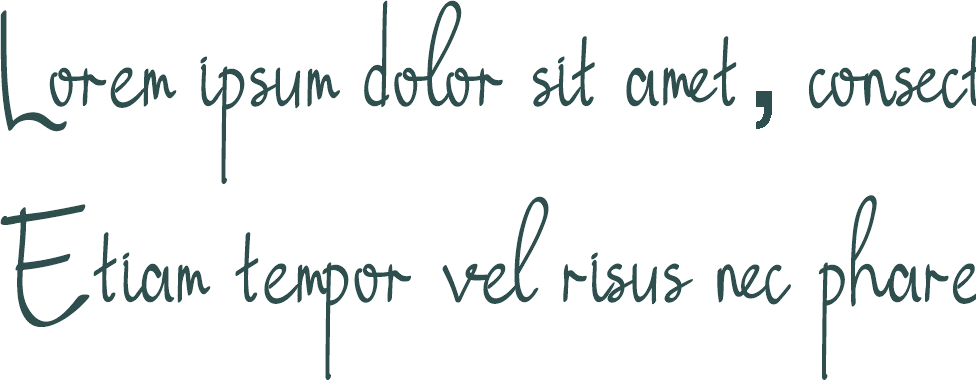 Lorem ipsum dolor sit amet, consect
Etiam tempor vel risus nec phare